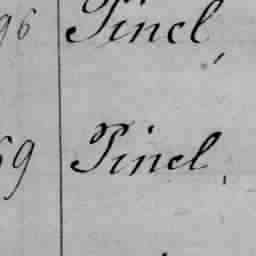 96 Pinel,
59 Pinel,